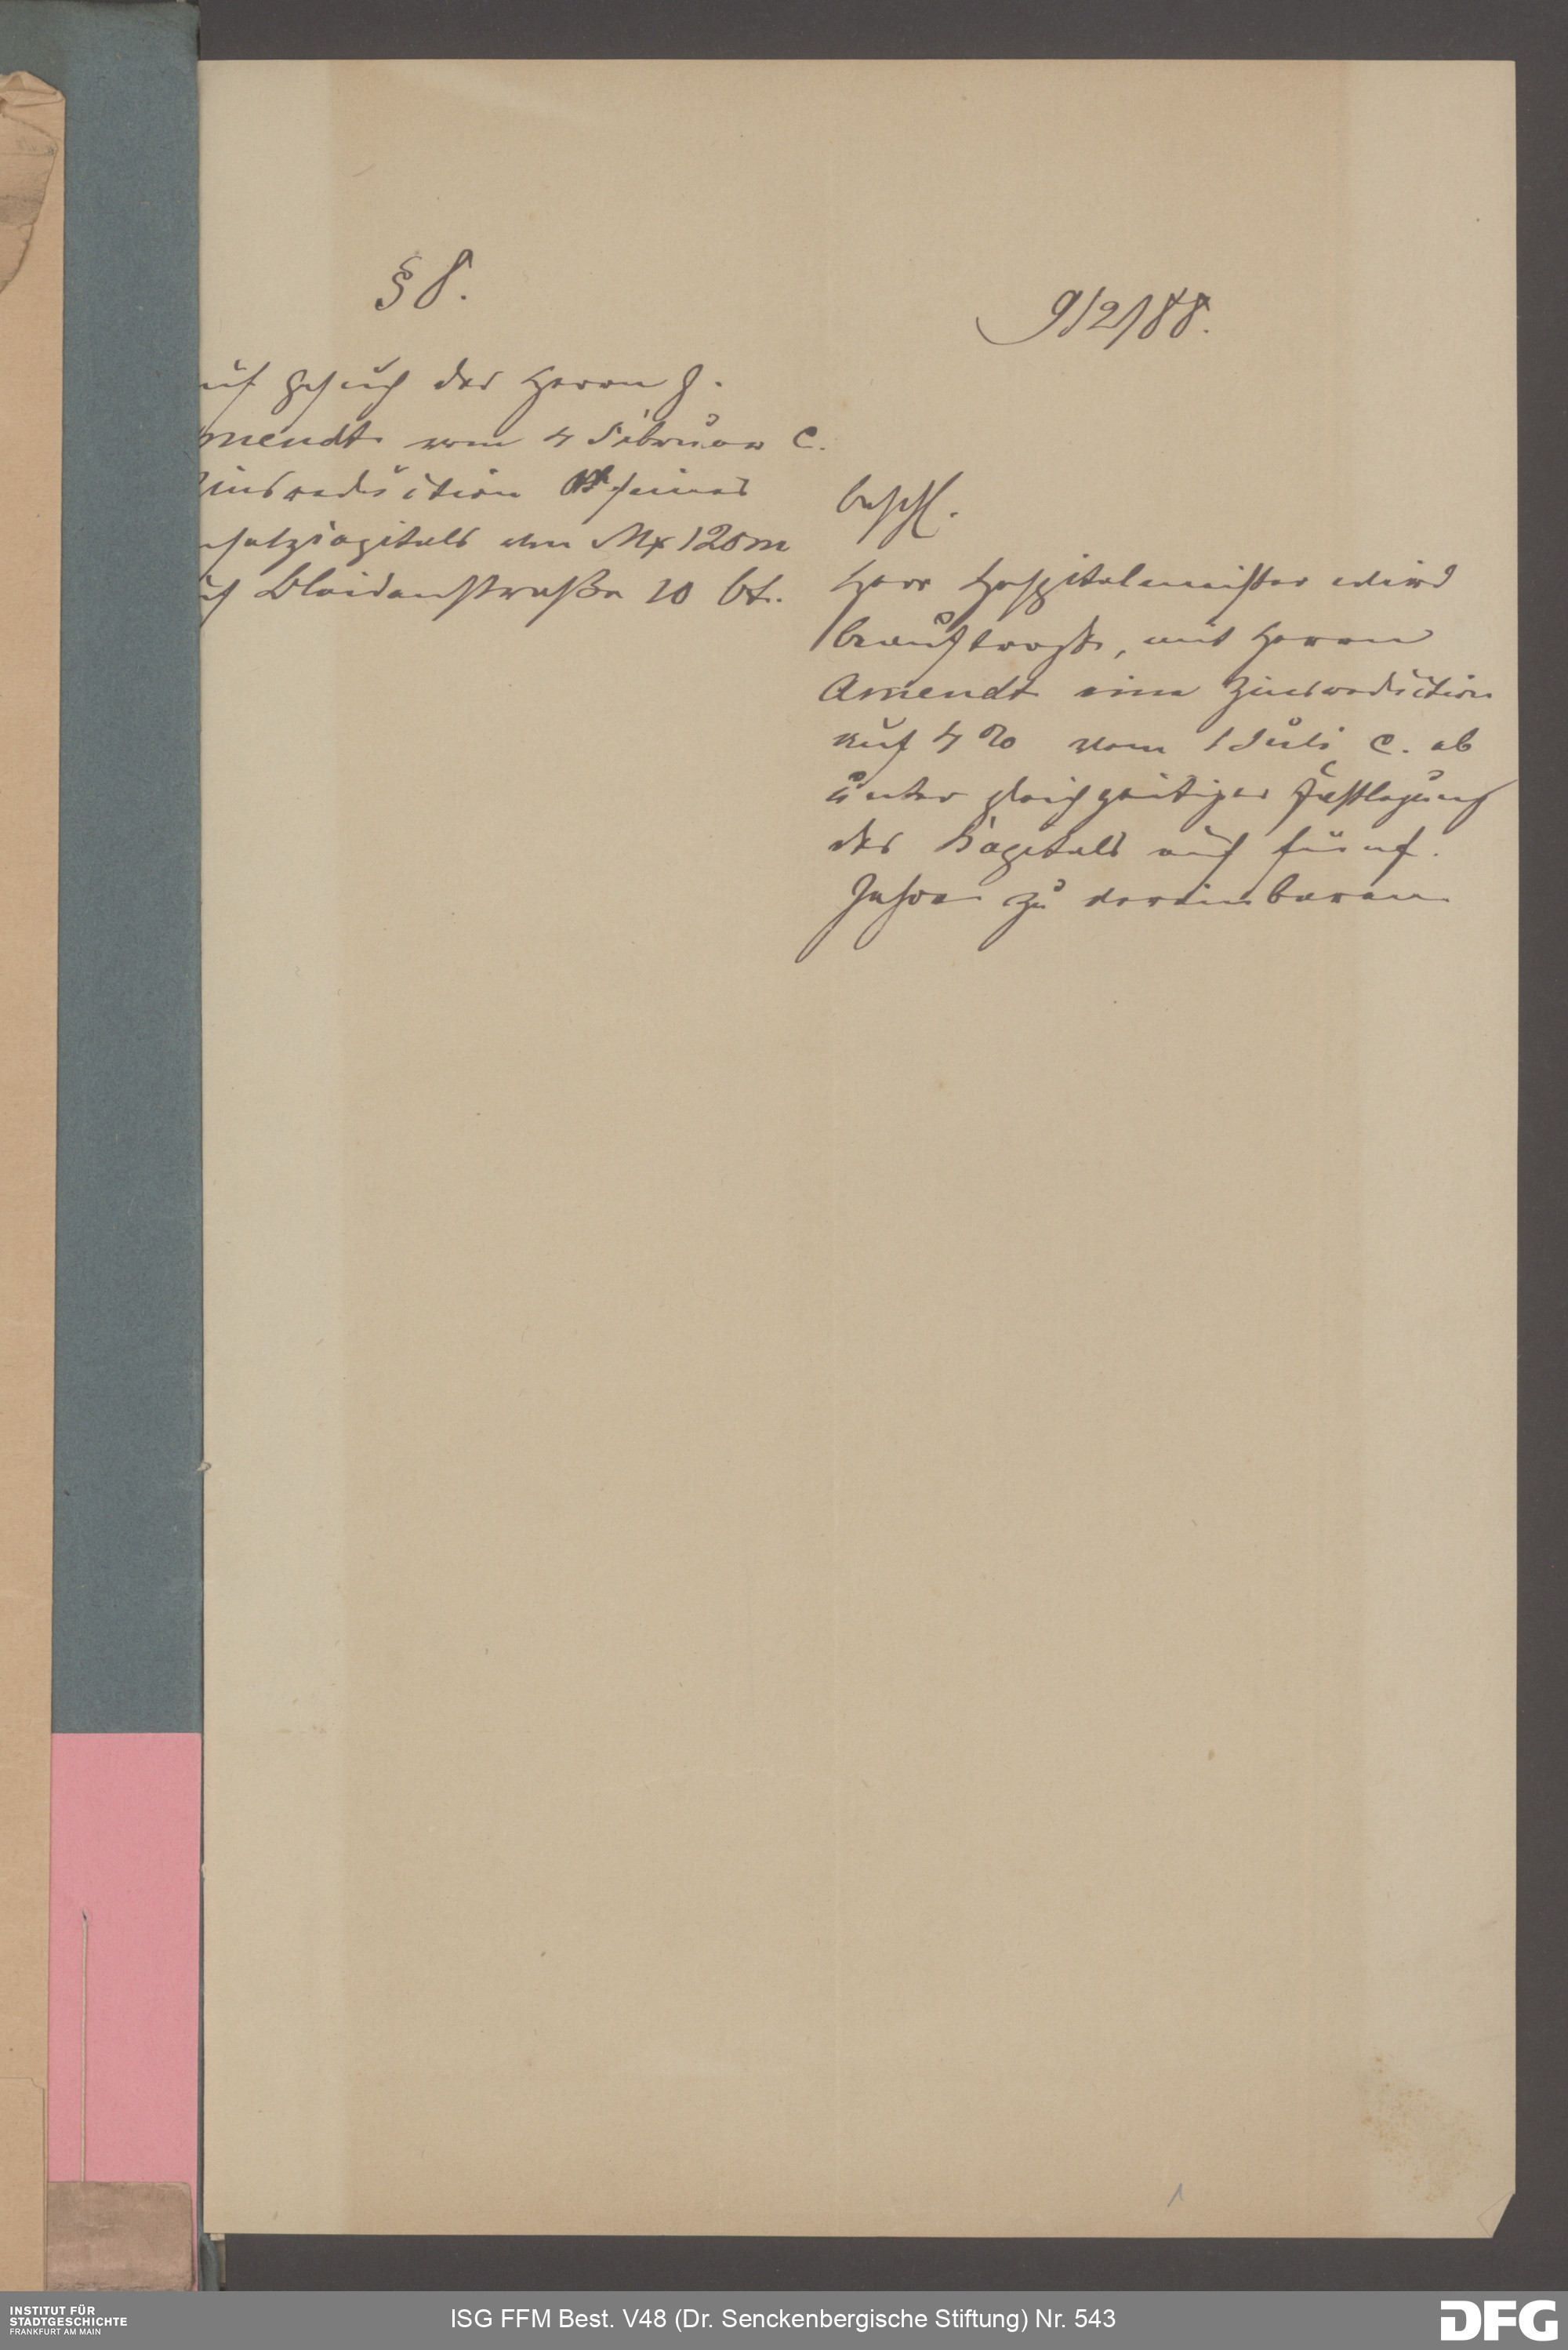 § 8.
uf Gesuch des Herrn J.
mendt vom 4 Februar c.
Zinsreduction seines
nsatzkapitals von Mk 120m
uf Bleidenstraße 10 bt.
9/2/88.
beschl.
Herr Hospitalmeister wird
beauftragt, mit Herrn
Amendt eine Zinsreduction
auf 4 % vom 1 Juli c. ab
unter gleichzeitiger Festlegung
des Kapitals auf fünf
Jahre zu vereinbaren
1
INSTITUT FÜR
STADTGESCHICHTE
FRANKFURT AM MAIN
ISG FFM Best. V48 (Dr. Senckenbergische Stiftung) Nr. 543
DFG